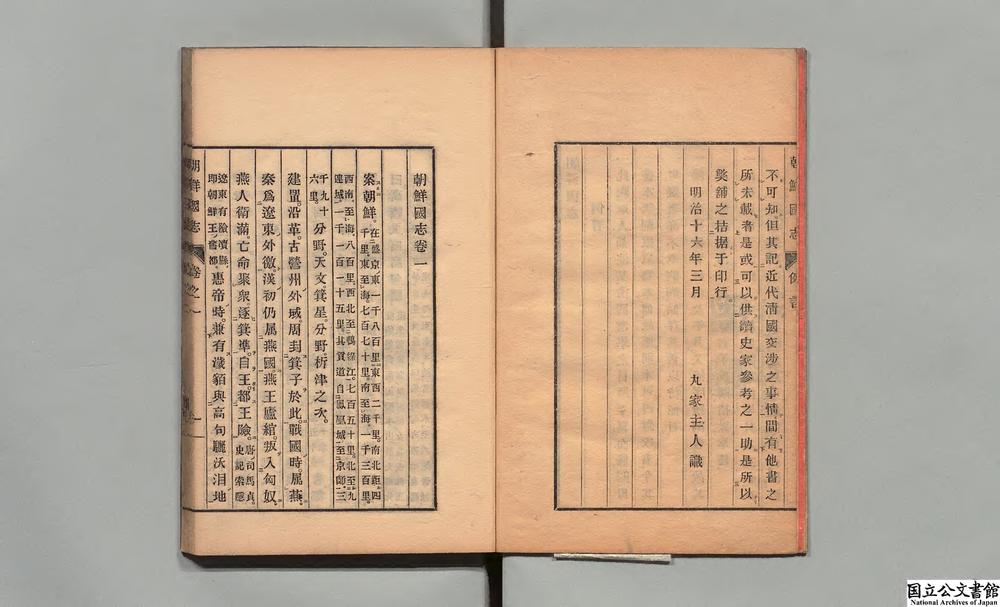 朝鮮國志
例言
不可知但其記近代淸國交涉之事情間有他書之
所未載者是或可以供讀史家參考之一助是所以
奬舗之拮据于印行。
明治十六年三月
九家主人識
朝鮮國志卷一
案朝鮮。在盛京東一千八百里東西二千里。南北距四
千里。東至海七百七十里。南至海一千三百里。
西南至海八百里。西北至鴨綠江。七百五十里。北至九
連城一千一百十五里。其貢道自鳳凰城至京師。三
千九十
六里。分野。天文箕星分野。析津之次。
建置沿革。古營州外域。周封箕子於此。戰國時。屬燕。
秦爲遼東外徼。漢初仍屬燕國。燕王盧綰。叛入匈奴
燕人衞滿。亡命聚衆。逐箕準。自王。都王險。唐司馬貞
史記索隱
遼東有險瀆縣。
卽朝鮮王舊都。惠帝時。兼有濊貊與高句驪沃沮地
朝鮮國志
卷之一
国立公文書館
National Archives of Japan